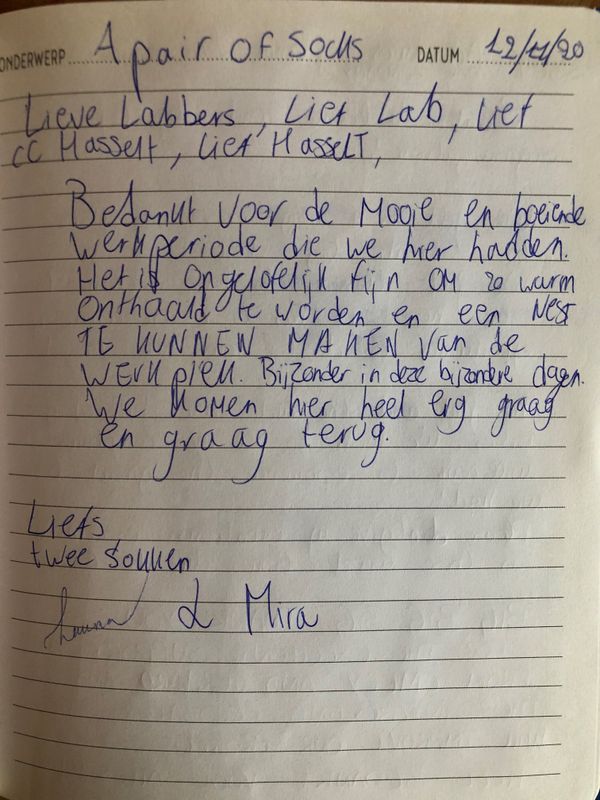 ONDERWERP A pair of Socks DATUM 12/11/20
Lieve Labbers, Lief Lab, Lief
CC Hasselt, Lief HasselT,
Bedankt voor de Mooie en boeiende
werkperiode die we hier hadden.
Het is ongelofelijk fijn om zo warm
onthaald te worden en een Nest
TE KUNNEN MAKEN van de
WERKPLEK. Bijzonder in deze bijzondere dagen.
We komen hier heel erg graag
en graag terug.
Liefs
twee sokken
& Mira